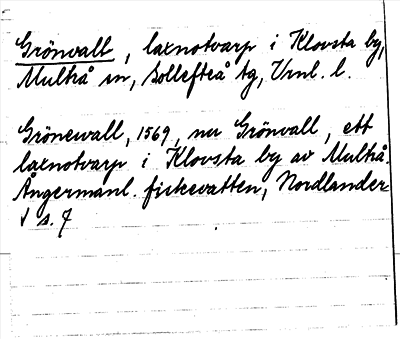 Grönvalt, laxnotvarp i Klovsta by,
Multrå sn, Sollefteå tg, Vrnl. l.
Grönewall, 1569, nu Grönvall, ett
laxnotvarp i Klovsta by av Multrå.
Ångermanl. fiskevatten, Nordlander
s. 7